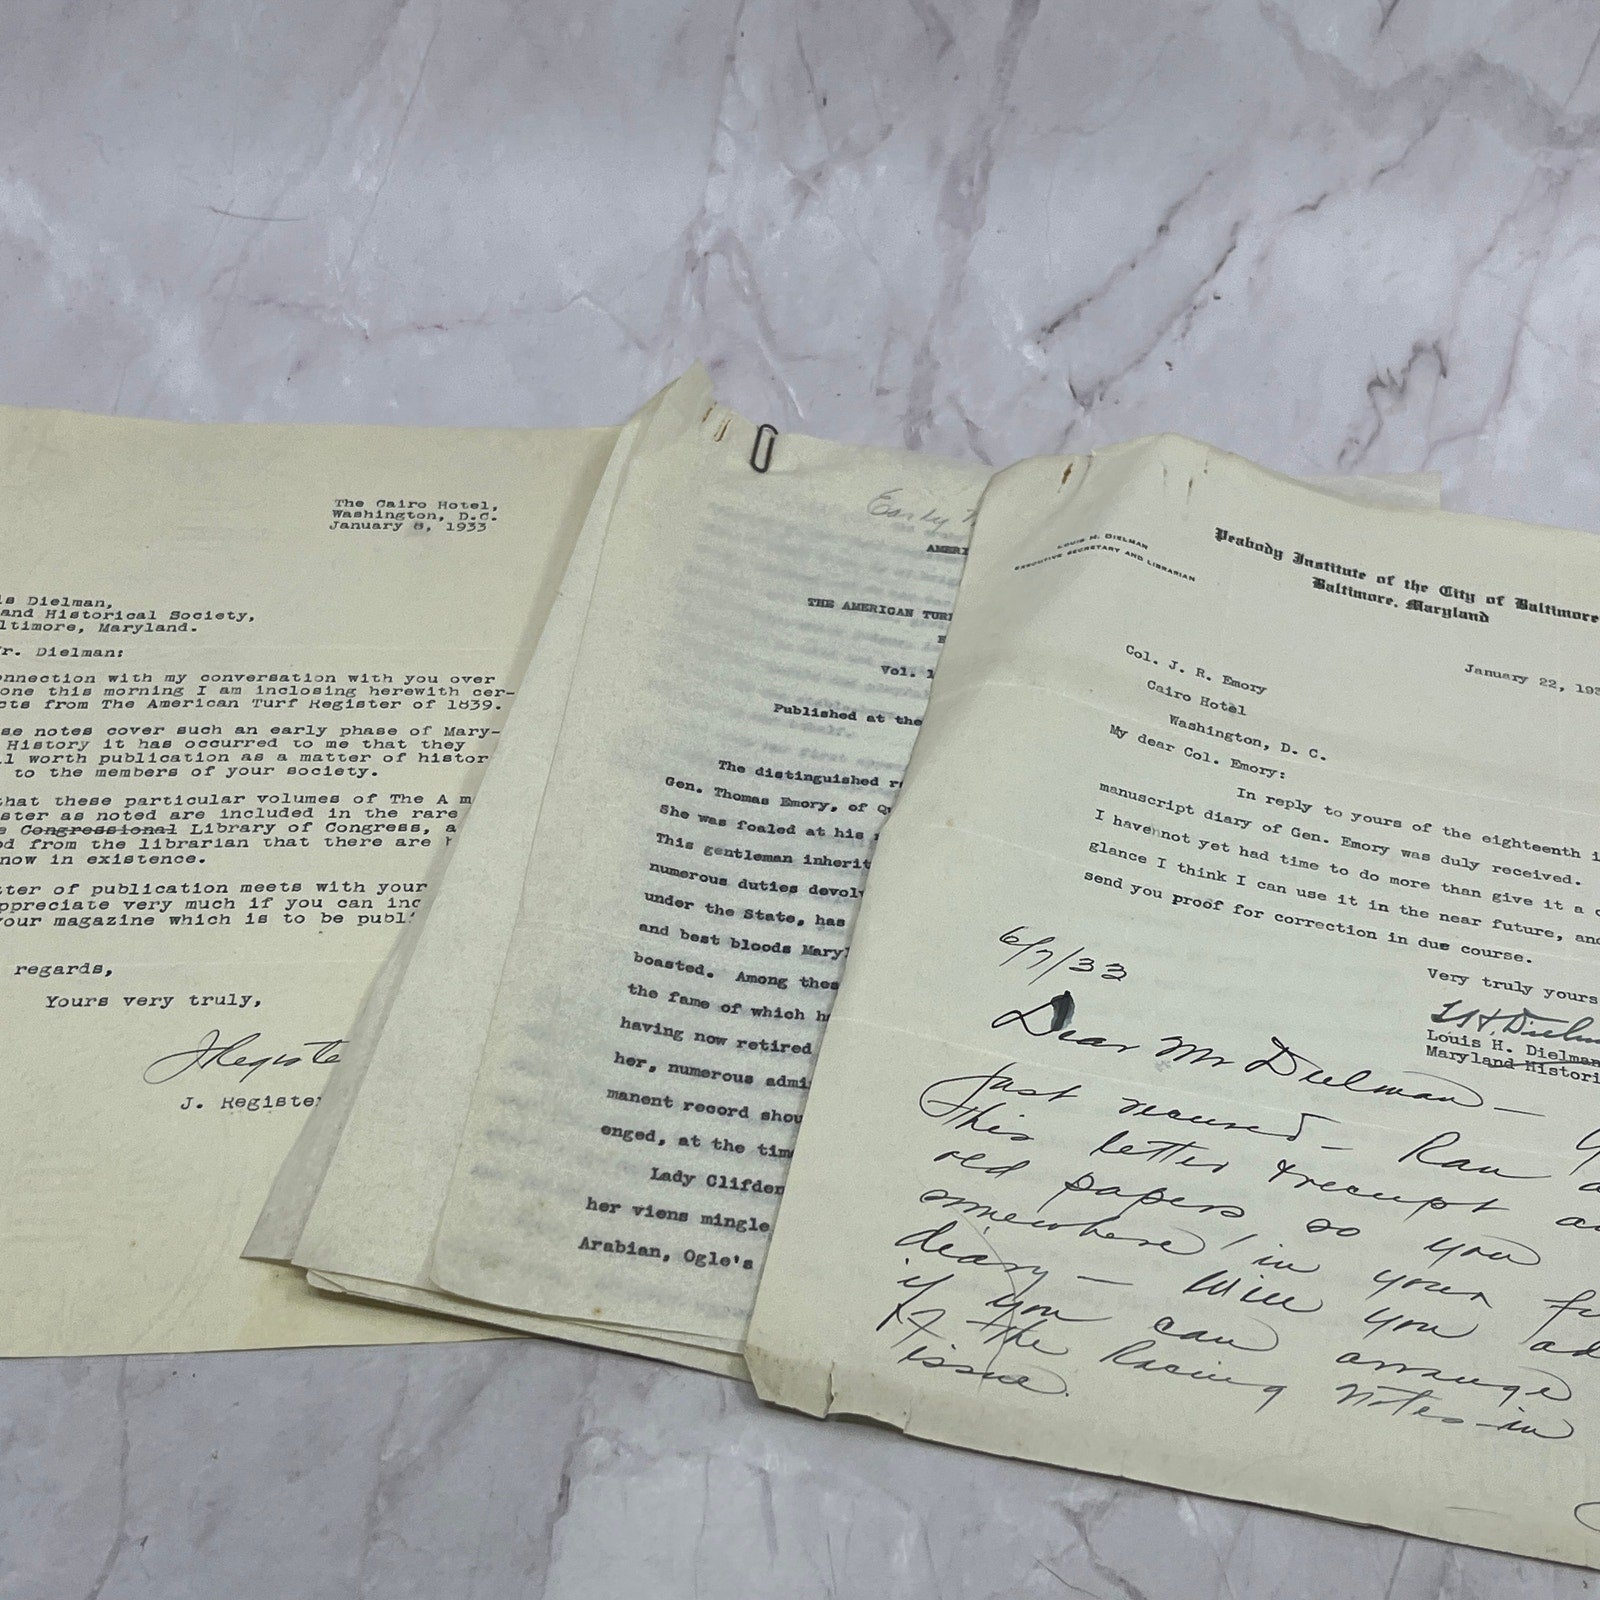 The Cairo Hotel,
Washington, D.C.
January 8, 1933
is Dielman,
and Historical Society,
ltimore, Maryland.
r. Dielman:
onnection with my conversation with you over
one this morning I am inclosing herewith cer-
cts from The American Turf Register of 1839.
se notes cover such an early phase of Mary-
History it has occurred to me that they
l worth publication as a matter of histor
to the members of your society.
that these particular volumes of The A m
ster as noted are included in the rare
e Congressional Library of Congress, a
ed from the librarian that there are
now in existence.
tter of publication meets with your
ppreciate very much if you can inc
your magazine which is to be publi
regards,
Yours very truly,
JRegiste
J. Register
Early
AMERI
THE AMERICAN TURF
Vol. 1
Published at the
The distinguished r
Gen. Thomas Emory, of Qu
She was foaled at his
This gentleman inherit
numerous duties devolv
under the State, has
and best bloods Maryl
boasted. Among thes
the fame of which h
having now retired
her, numerous admi
manent record shou
enged, at the time
Lady Clifden
her viens mingle
Arabian, Ogle's
LOUIS H. DIELMAN
EXECUTIVE SECRETARY AND LIBRARIAN
Peabody Institute of the City of Baltimore
Baltimore, Maryland
January 22, 193
Col. J. R. Emory
Cairo Hotel
Washington, D. C.
My dear Col. Emory:
In reply to yours of the eighteenth i
manuscript diary of Gen. Emory was duly received.
I have not yet had time to do more than give it a c
glance I think I can use it in the near future, and
send you proof for correction in due course.
Very truly yours
L H. Dielm
Louis H. Dielman
Maryland Histori
6/7/33
Dear Mr Dielman —
Just received — Ran
this letter & receipt
old papers so you
somewhere in your
diary — Will you ad
if you can arrange
the Racing Notes in
issue.